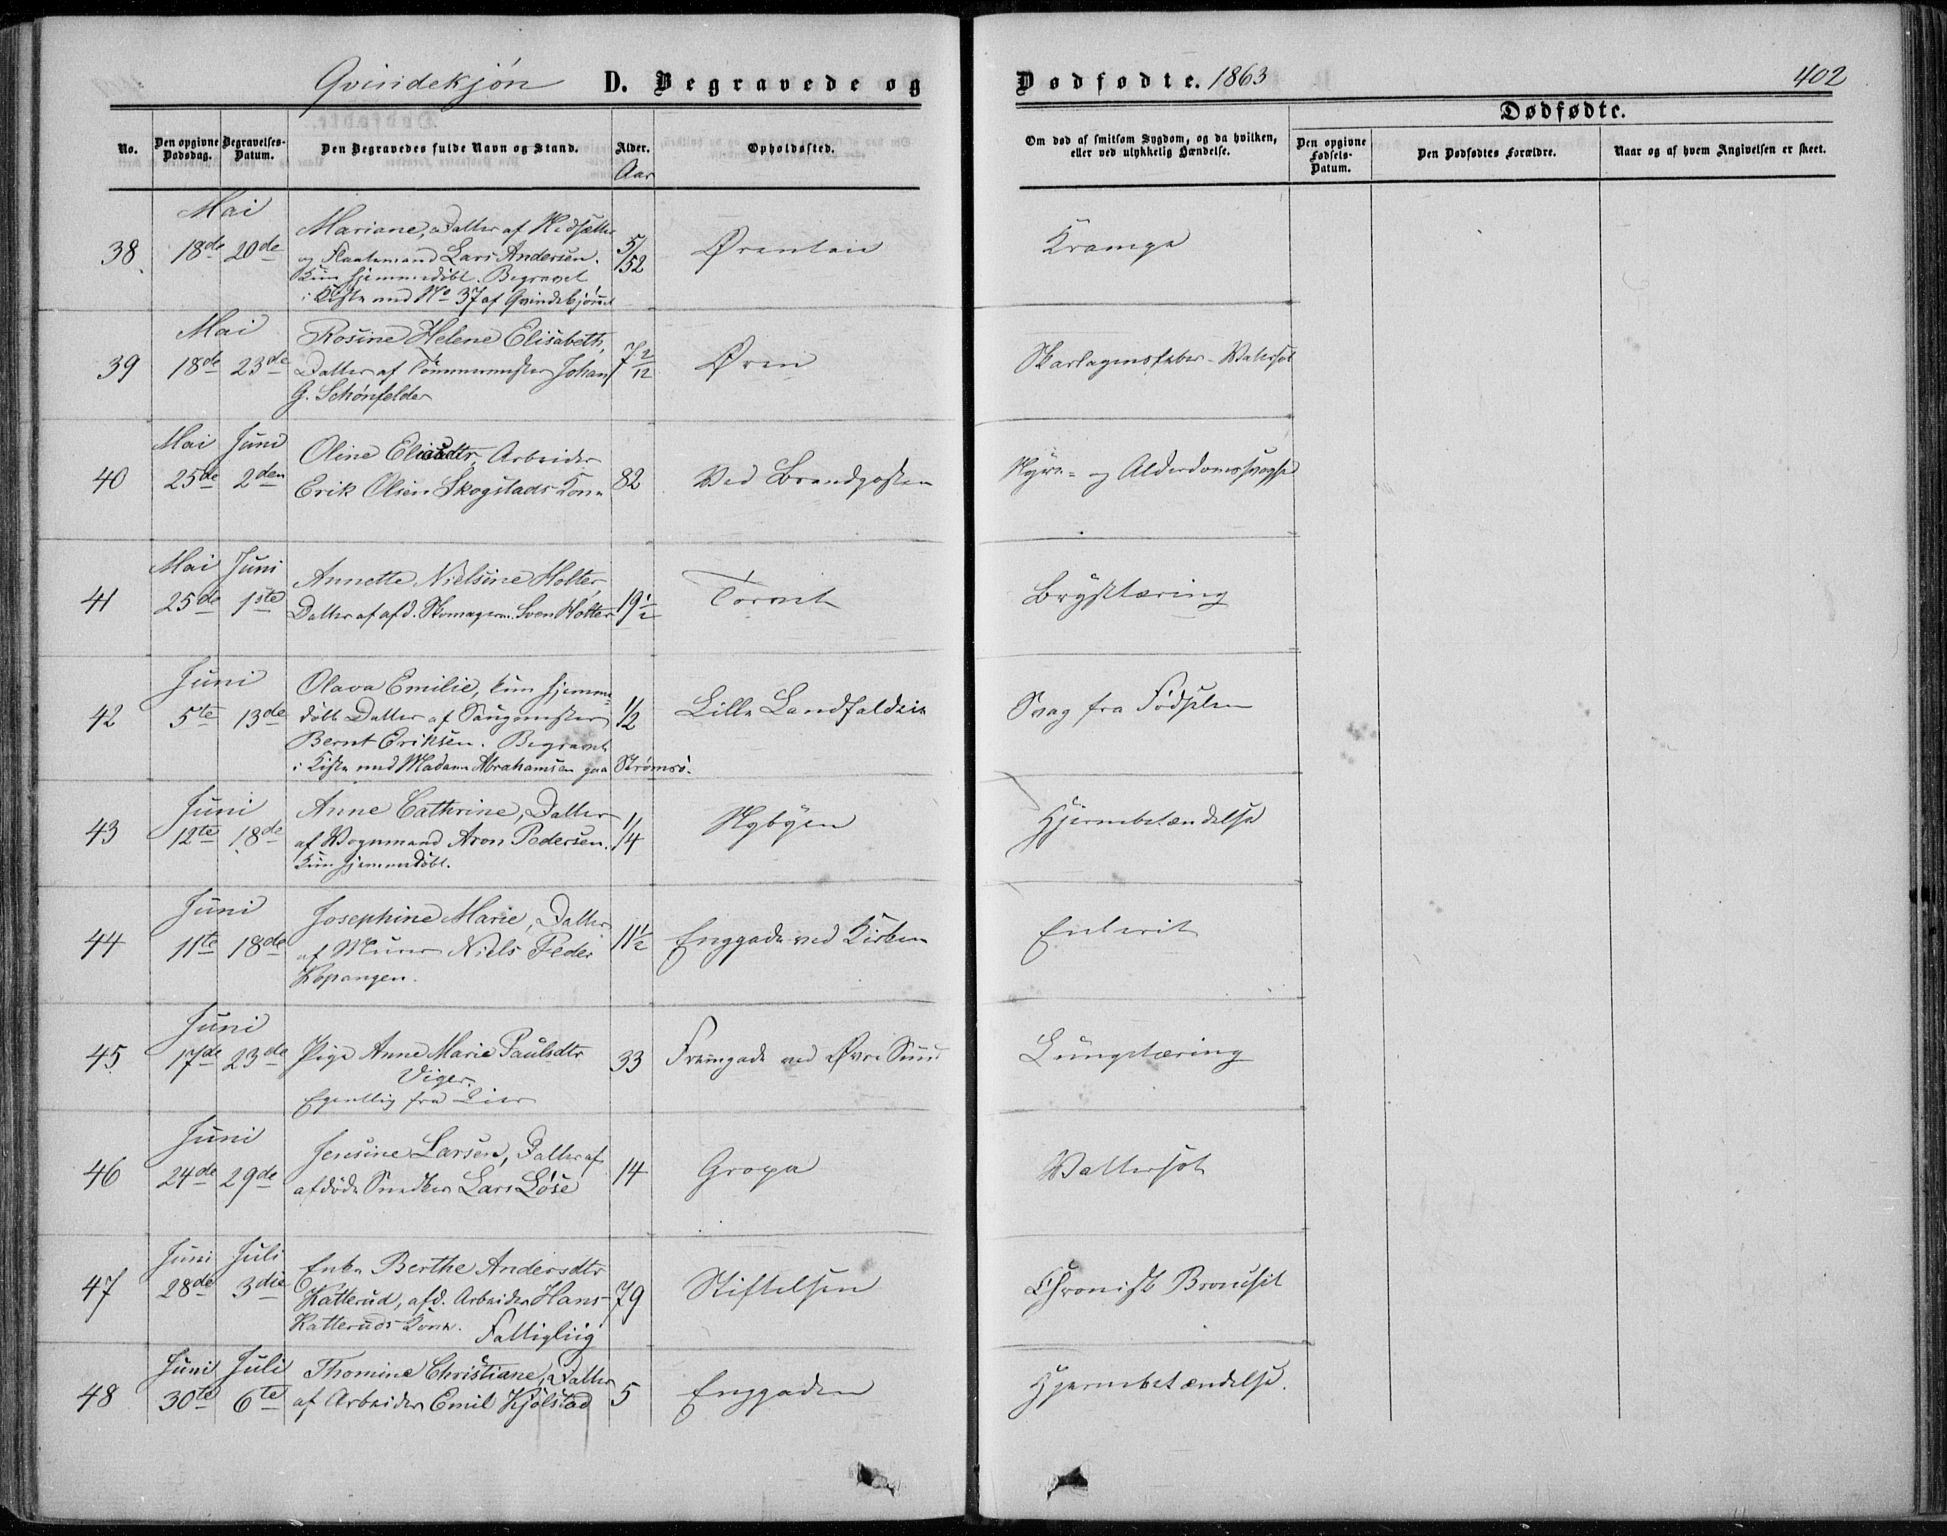 Qvindekjøn D. Begravede og Dødfødte. 1863 402
Dødfødte.
No. Den opgivne Dødsdag. Begravelses-Datum. Den Begravedes fulde Navn og Stand. Alder. Opholdssted. Om død af smitsom Sygdom, og da hvilken, eller ved ulykkelig Hændelse. Den opgivne Fødsels-Datum. Den Dødfødtes Forældre. Naar og af hvem Angivelsen er skeet.
Aar
Mai
38 18de 20de Mariane, Datter af
og Flaatemand Lars Andersen. 5/52 Ørentoin Krampe
Kun hjemmedøbt. Begravet
i Kiste med No 37 af Qvindekjønnet
Mai
39 18de 23de Rosine Helene Elisabeth,
Datter af Tømmermester Johan 7 2/12 Øren Skarlagensfeber - Watersot
G. Schönfelder
Mai Juni
40 25de 2den Oline Eliasdtr, Arbeider
Erik Olsen Skogstads Kone 82 Ved Brandposten og Alderdomssvaghed
Mai Juni
41 25de 1ste Annette Nielsine Holter
Datter af afd. Skomagerm. Sven Holter 19 1/2 Torvet Brysttæring
Juni
42 5te 13de Olava Emilie, kun hjemme-
døbt Datter af Saugmester 1/2 Lille Landfaldøie Svag fra Fødselen
Bernt Eriksen. Begravet
i Kiste med Madam Abrahamsen paa Strømsø.
Juni
43 12te 18de Anne Cathrine, Datter
af Vognmand Aron Pedersen. 1/4 Nybyen Hjernebetændelse
Kun hjemmedøbt.
Juni
44 11te 18de Josephine Marie, Datter
af Murer Niels Peder 11 1/2 Enggade ved Kirken
Kopangen.
Juni
45 17de 23de Pige Anne Marie Paulsdtr 33 Fremgade ved Øvre Sund Lungetæring
Viger.
Egentlig fra Lier
Juni
46 24de 29de Jensine Larsen, Datter af
afdøde Snedker Lars Löse 14 Gropa Wattersot
Juni Juli
47 28de 3die Enke Berthe Andersdtr
Katterud, afd. Arbeider Hans 79 Stiftelsen Chronisk Bronchit
Katteruds Kone. Fattiglig
Juni Juli
48 30te 6te Thomine Christiane, Datter
af Arbeider Emil Kjølstad 5 Enggaden Hjernebetændelse.